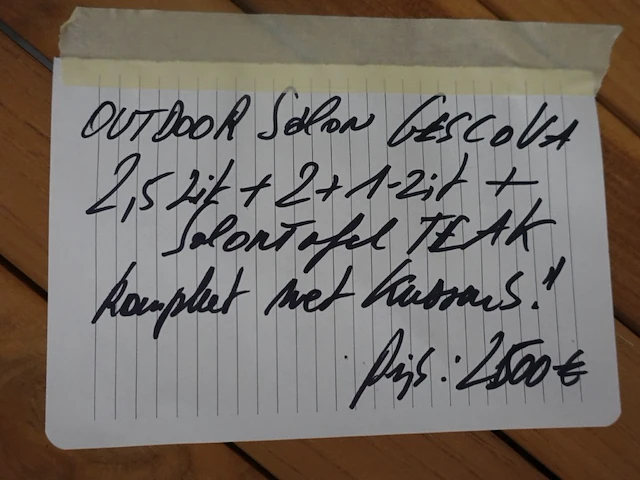 OUTDOOR Salon GESCOVA
2,5 zit + 2 + 1-zit +
Salontafel TEAK
kompleet met Kussens!
Prijs: 2500 €